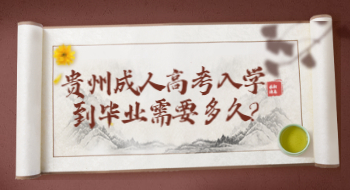 贵州成人高考入学
到毕业需要多久?